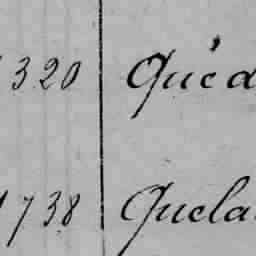 320 Quéd
1738 Quela